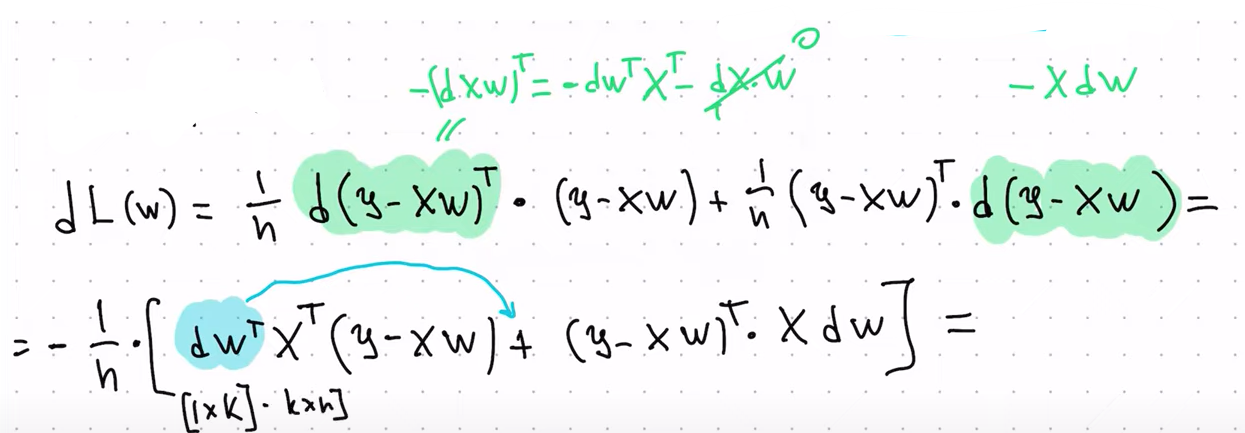 -(dXw)ᵀ = -dwᵀXᵀ - dX·w 0 T - X dw
//
dL(w) = 1/n d(y-Xw)ᵀ · (y-Xw) + 1/n (y-Xw)ᵀ · d(y-Xw) =
= - 1/n · [dwᵀXᵀ(y-Xw) + (y-Xw)ᵀ · X dw] =
[1×K] · k×n]